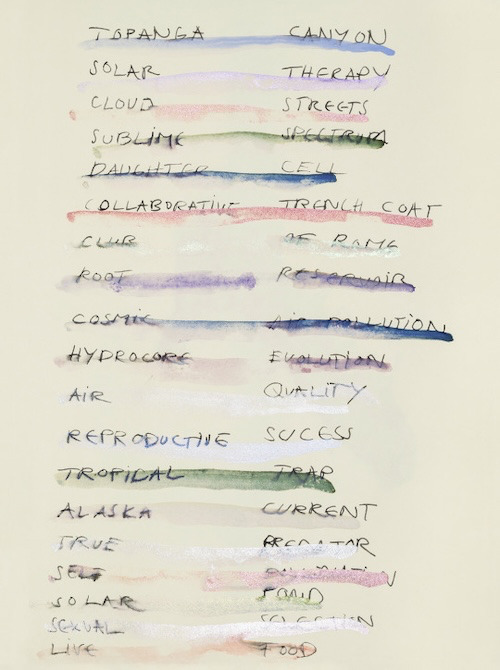 TOPANGA CANYON
SOLAR THERAPY
CLOUD STREETS
SUBLIME SPECTRUM
DAUGHTER CELL
COLLABORATIVE TRENCH COAT
CLUB OF ROME
ROOT RESERVOIR
COSMIC AIR POLLUTION
HYDROCORE EVOLUTION
AIR QUALITY
REPRODUCTIVE SUCESS
TROPICAL TRAP
ALASKA CURRENT
TRUE PREDATOR
SELF
SOLAR POND
SEXUAL SELECTION
LIVE FOOD